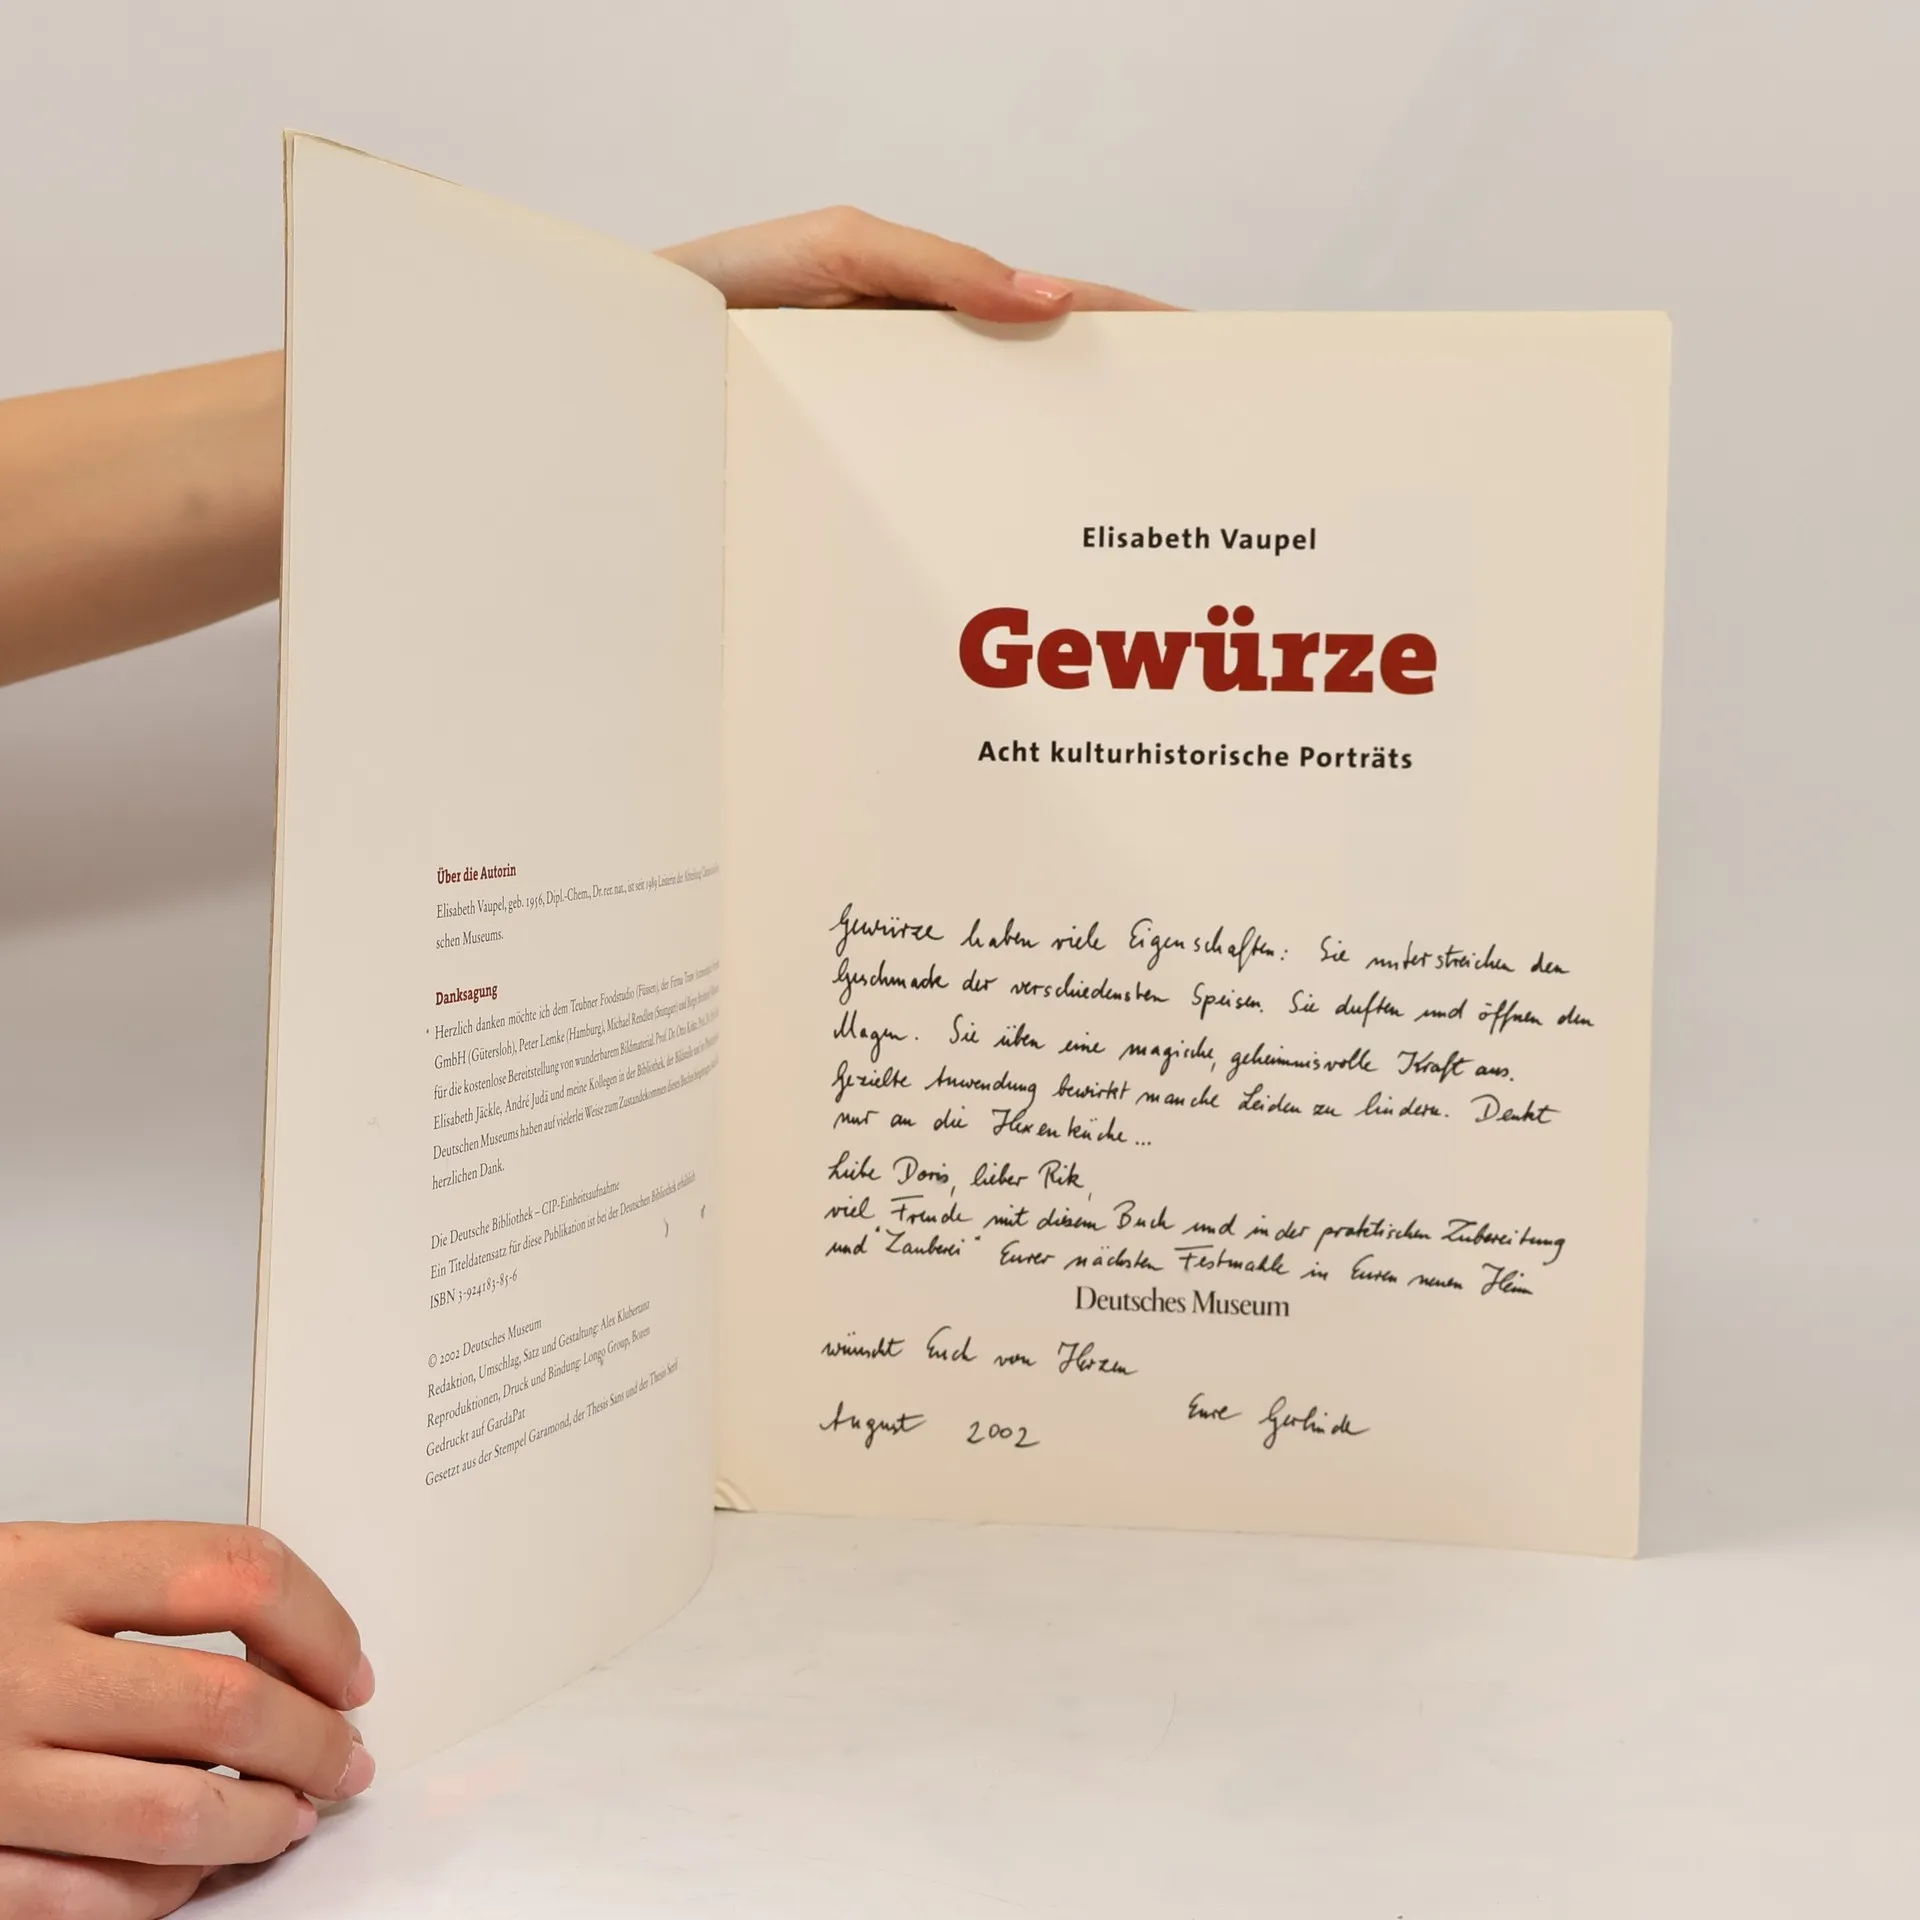 Über die Autorin
Elisabeth Vaupel, geb. 1956, Dipl.-Chem., Dr. rer. nat., ist seit 1989 Leiterin der Abteilung
schen Museums.
Danksagung
Herzlich danken möchte ich dem Teubner Foodstudio (Füssen), der Firma
GmbH (Gütersloh), Peter Lemke (Hamburg), Michael Rendlen (Stuttgart) und
für die kostenlose Bereitstellung von wunderbarem Bildmaterial. Prof. Dr. Otto
Elisabeth Jäckle, André Judä und meine Kollegen in der Bibliothek, der Bildstelle und
Deutschen Museums haben auf vielerlei Weise zum Zustandekommen dieses Buches beigetragen
herzlichen Dank.
Die Deutsche Bibliothek – CIP-Einheitsaufnahme
Ein Titeldatensatz für diese Publikation ist bei der Deutschen Bibliothek erhältlich
ISBN 3-924183-85-6
© 2002 Deutsches Museum
Redaktion, Umschlag, Satz und Gestaltung: Alex Klubertanz
Reproduktionen, Druck und Bindung: Longo Group, Bozen
Gedruckt auf GardaPat
Gesetzt aus der Stempel Garamond, der Thesis Sans und der Thesis Serif
Elisabeth Vaupel
Gewürze
Acht kulturhistorische Porträts
Gewürze haben viele Eigenschaften: Sie unterstreichen den
Geschmack der verschiedensten Speisen. Sie duften und öffnen den
Magen. Sie üben eine magische, geheimnisvolle Kraft aus.
Gezielte Anwendung bewirkt manche Leiden zu lindern. Denkt
nur an die Hexenküche...
Liebe Doris, lieber Rik,
viel Freude mit diesem Buch und in der praktischen Zubereitung
und "Zauberei" Eurer nächsten Festmahle in Euren neuen Heim
Deutsches Museum
wünscht Euch von Herzen
Eure Gerlinde
August 2002